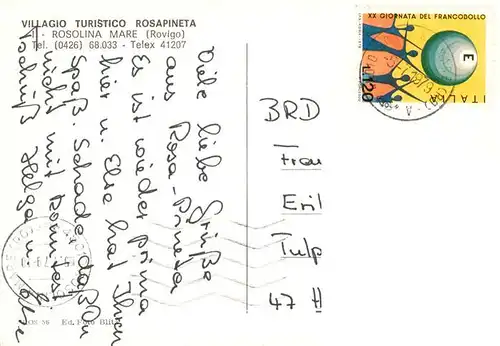 VILLAGIO TURISTICO ROSAPINETA
- ROSOLINA MARE (Rovigo)
Tel. (0426) 68.033 - Telex 41207
Viele liebe Grüße
aus Rosa-Pineta
Es ist wieder prima
hier u. Else hat Ihren
Spaß. Schade daß Du
nicht mit konntest.
Helga u. Else
XX GIORNATA DEL FRANCOBOLLO
E
ITALIA
L.120
BRD
Frau
Tulp
47 H
Ed. Foto